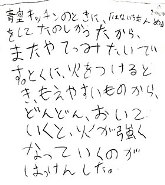 青空キッチンのときに、
をしてたのしかったから、
またやってみたいで
す。とくに、火をつけると
き、もえやすいものから、
どんどん、おいて
いくと、火が強く
なっていくのが
はっけんした。